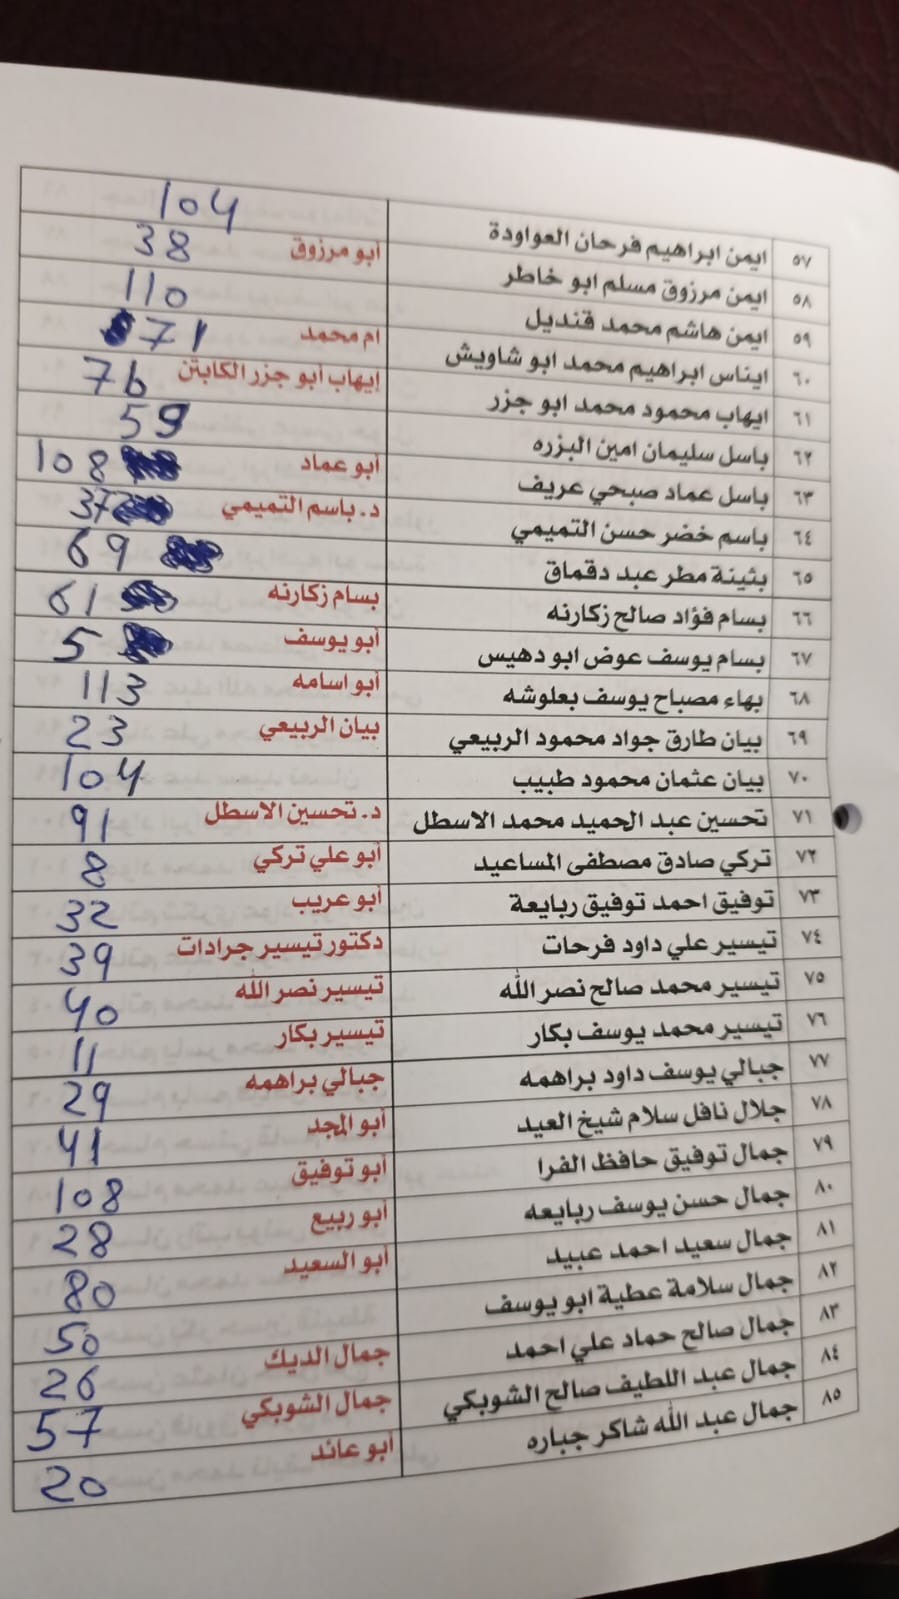 ٥٧ ايمن ابراهيم فرحان العواودة 104
٥٨ ايمن مرزوق مسلم ابو خاطر أبو مرزوق 38
٥٩ ايمن هاشم محمد قنديل 110
٦٠ ايناس ابراهيم محمد ابو شاويش ام محمد 71
٦١ ايهاب محمود محمد ابو جزر إيهاب أبو جزر الكابتن 76
٦٢ باسل سليمان امين البزره 59
٦٣ باسل عماد صبحي عريف أبو عماد 108
٦٤ باسم خضر حسن التميمي د. باسم التميمي 37
٦٥ بثينة مطر عبد دقماق 69
٦٦ بسام فؤاد صالح زكارنه بسام زكارنه 61
٦٧ بسام يوسف عوض ابو دهيس أبو يوسف 5
٦٨ بهاء مصباح يوسف بعلوشه أبو اسامه 113
٦٩ بيان طارق جواد محمود الربيعي بيان الربيعي 23
٧٠ بيان عثمان محمود طبيب 104
٧١ تحسين عبد الحميد محمد الاسطل د. تحسين الاسطل 91
٧٢ تركي صادق مصطفى المساعيد أبو علي تركي 8
٧٣ توفيق احمد توفيق ربايعة أبو عريب 32
٧٤ تيسير علي داود فرحات دكتور تيسير جرادات 39
٧٥ تيسير محمد صالح نصر الله تيسير نصر الله 40
٧٦ تيسير محمد يوسف بكار تيسير بكار 11
٧٧ جبالي يوسف داود براهمه جبالي براهمه 29
٧٨ جلال نافل سلام شيخ العيد أبو المجد 41
٧٩ جمال توفيق حافظ الفرا أبو توفيق 108
٨٠ جمال حسن يوسف ربايعه أبو ربيع 28
٨١ جمال سعيد احمد عبيد أبو السعيد 80
٨٢ جمال سلامة عطية ابو يوسف 50
٨٣ جمال صالح حماد علي احمد جمال الديك 26
٨٤ جمال عبد اللطيف صالح الشوبكي جمال الشوبكي 57
٨٥ جمال عبد الله شاكر جباره أبو عائد 20